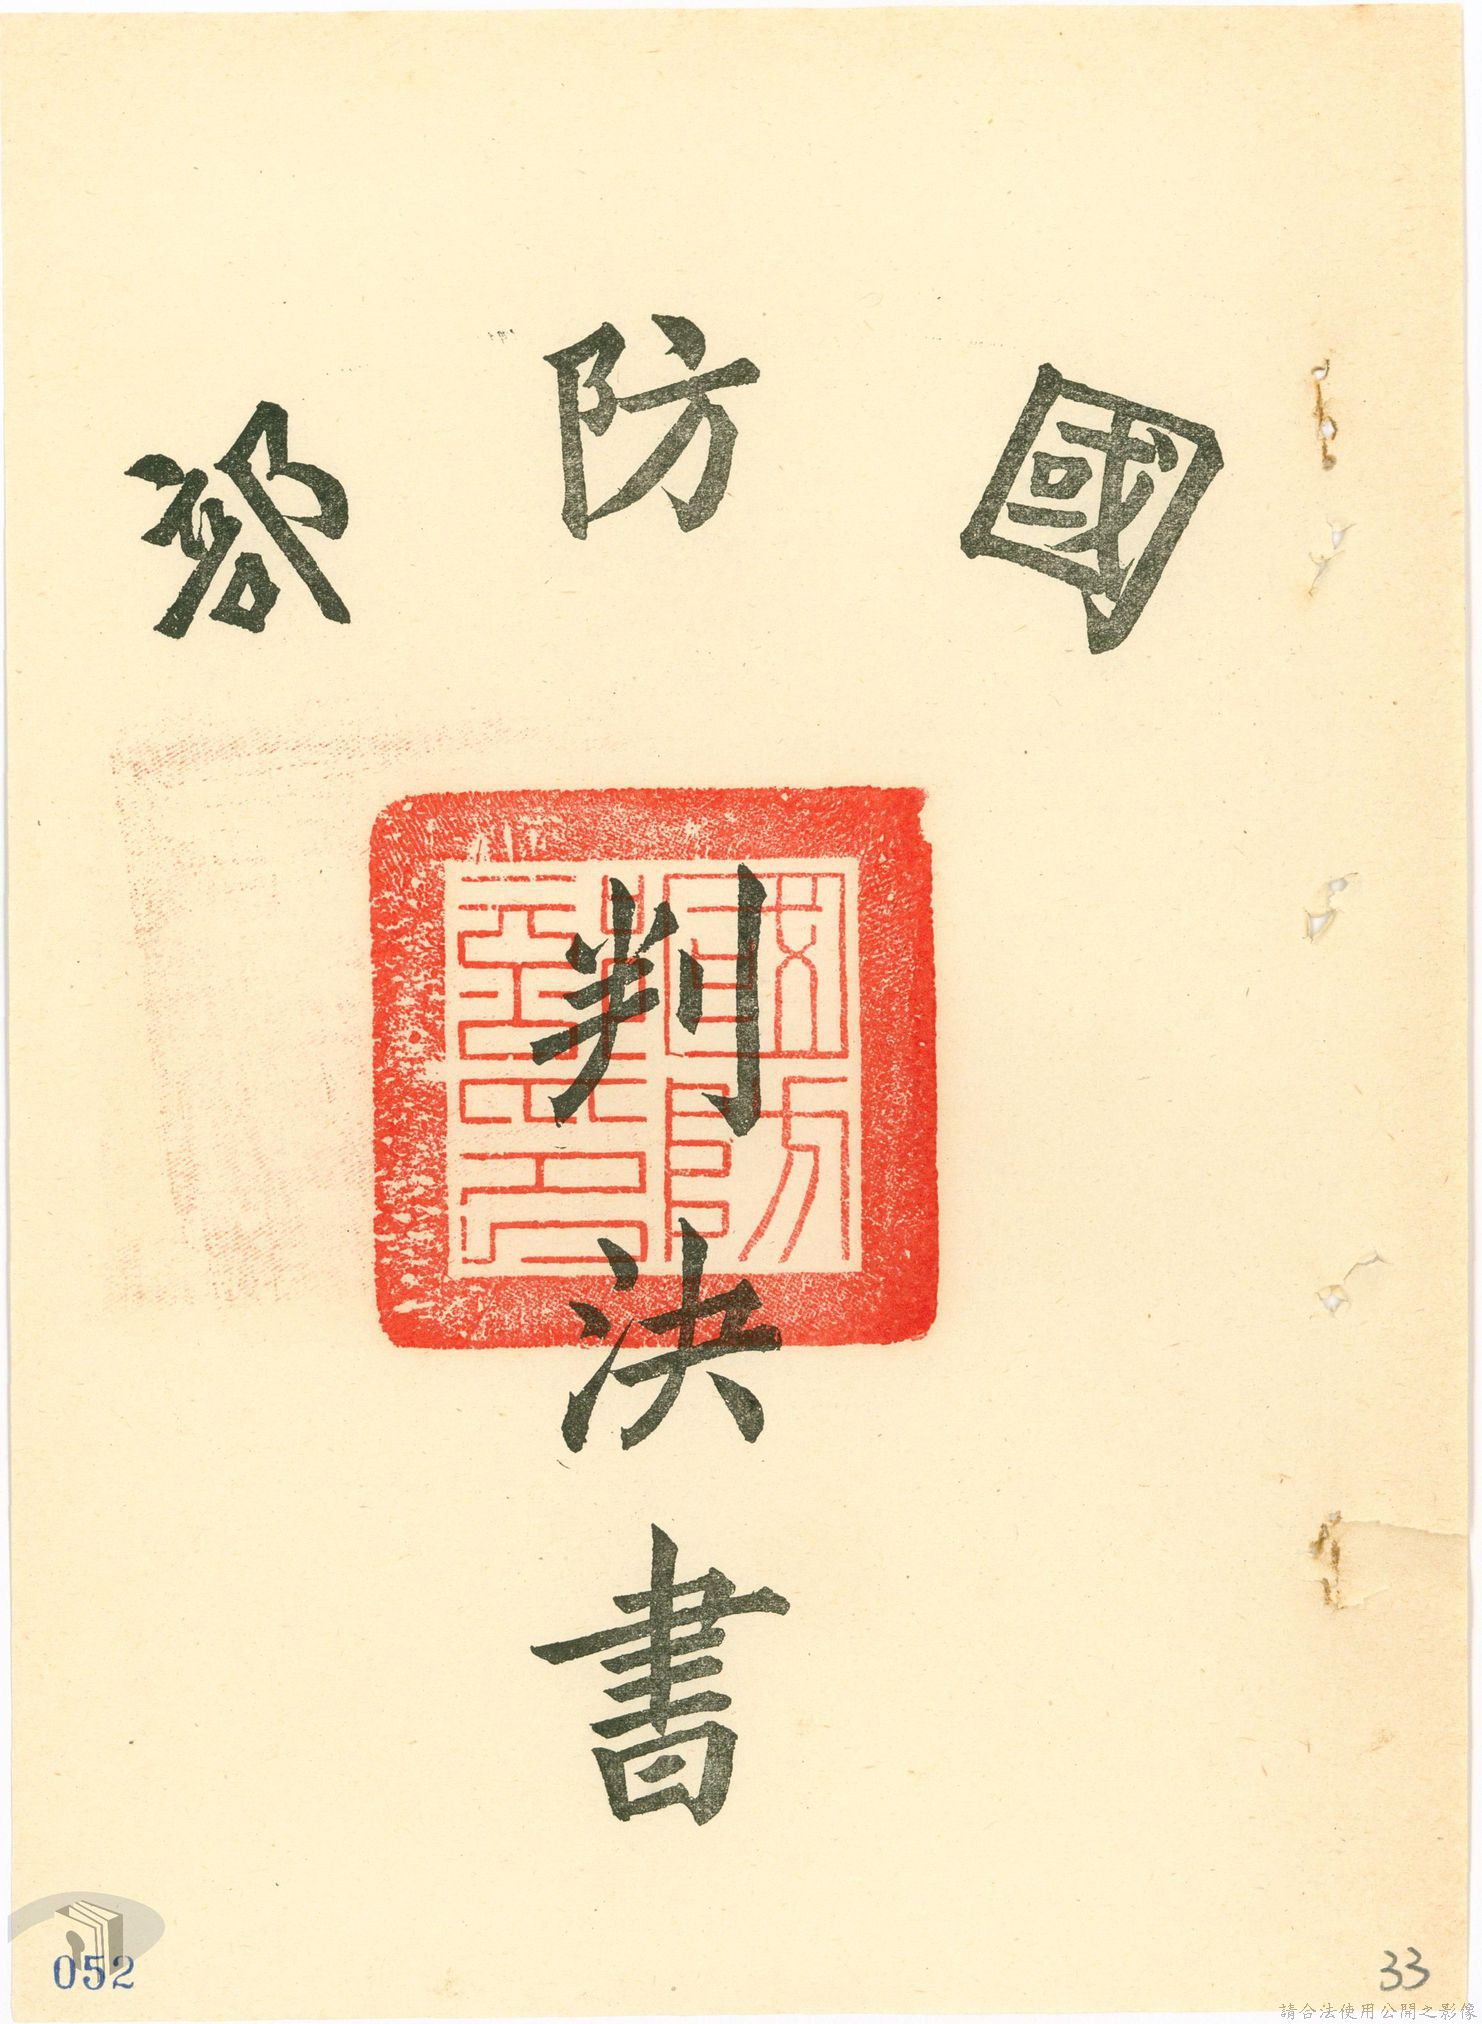 國防部
判決書
052
33
請合法使用公開之影像